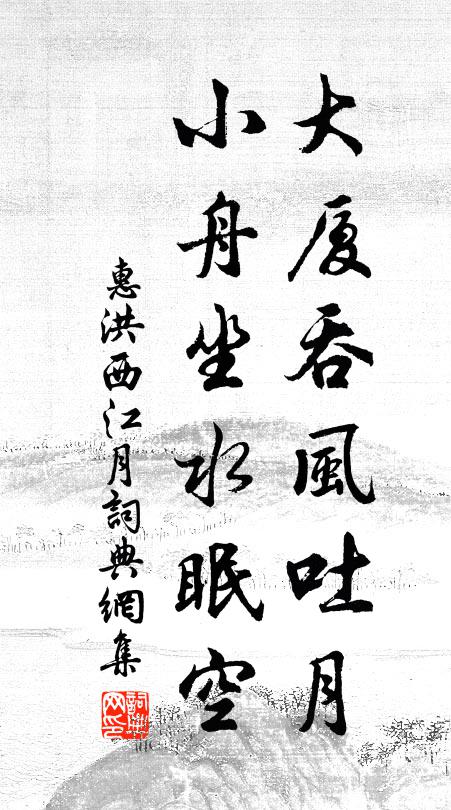 大厦吞風吐月
小舟坐水眠空
惠洪西江月詞典網集